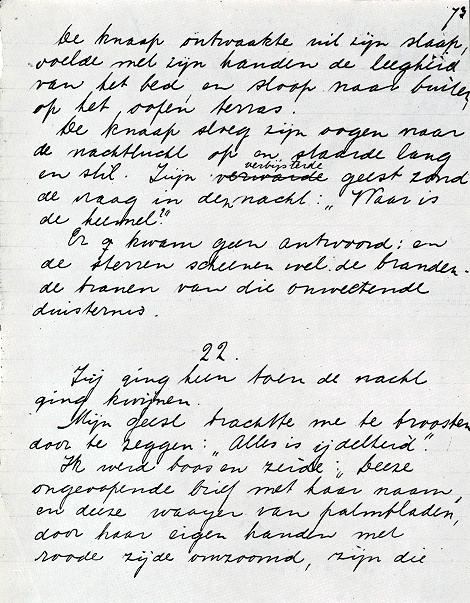 73
De knaap ontwaakte uit zijn slaap,
voelde met zijn handen de leegheid
van het bed en sloop naar buiten
op het open terras.
De knaap sloeg zijn oogen naar
de nachtlucht op en staarde lang
en stil. Zijn verwarde verbijsterde geest zond
de vraag in den nacht: „Waar is
de hemel?"
Er kwam geen antwoord: en
de sterren schenen wel de branden-
de tranen van die onwetende
duisternis.
22.
Zij ging heen toen de nacht
ging kwijnen.
Mijn geest trachtte me te troosten
door te zeggen: „Alles is ijdelheid".
Ik werd boos en zeide: „Deeze
ongeopende brief met haar naam,
en deeze waayer van palmbladen,
door haar eigen handen met
roode zijde omzoomd, zijn die